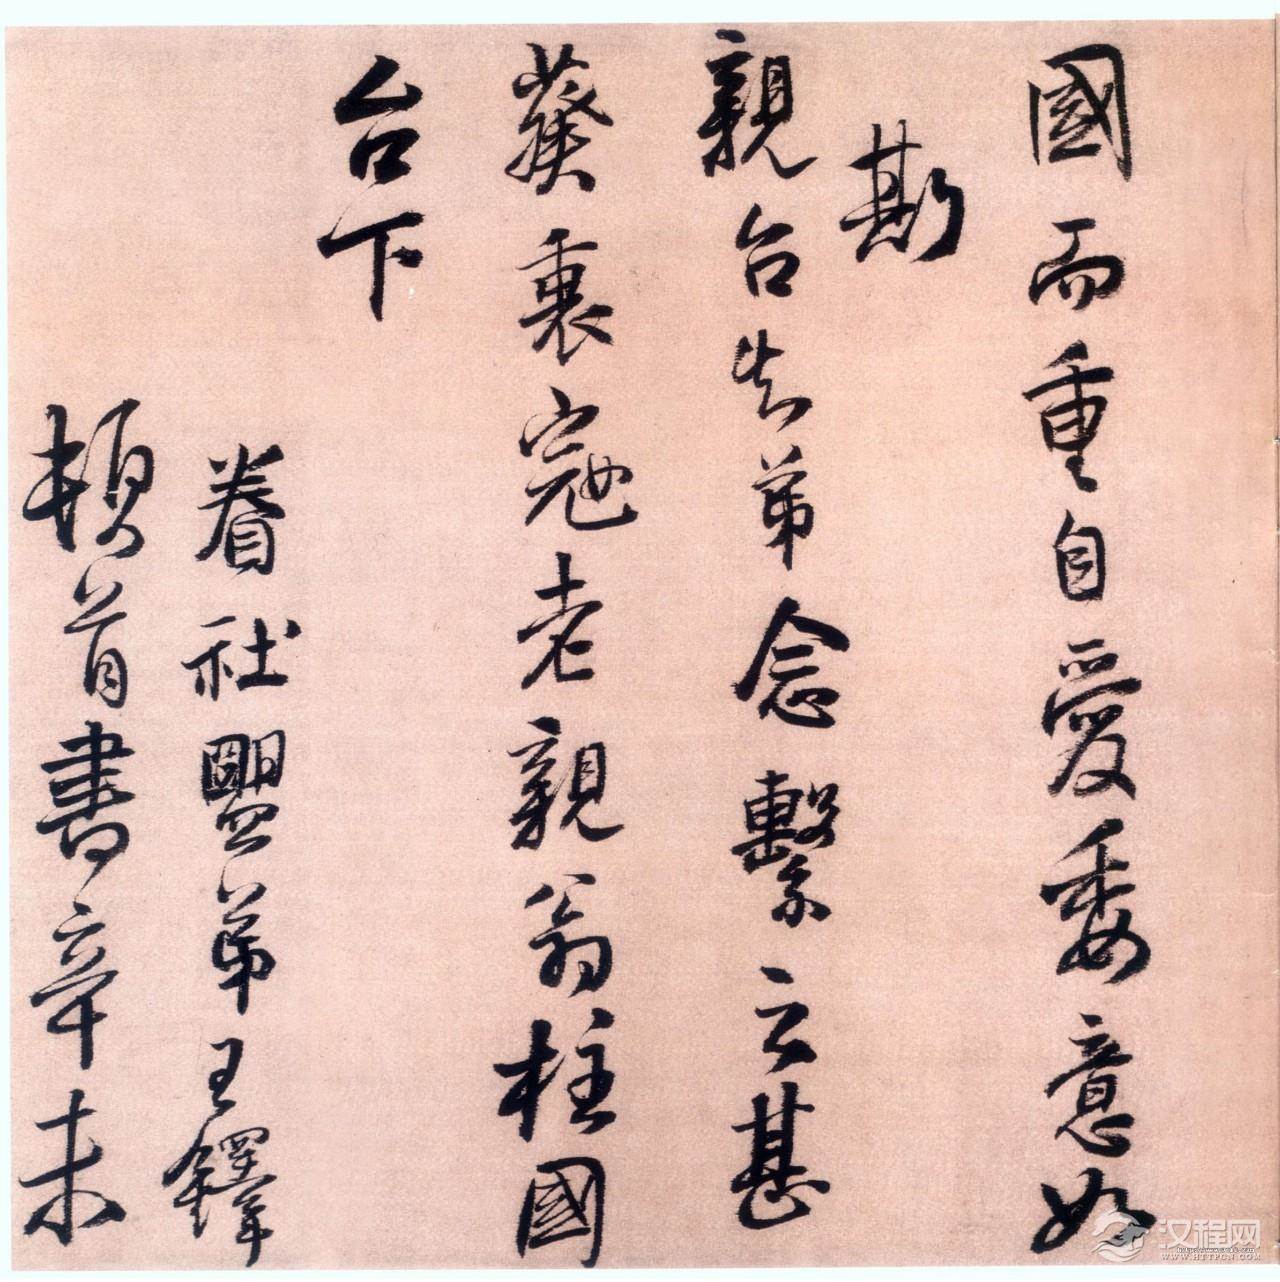 國而重自愛委意如
斯
親台告弟念繫云甚
葵裏寇老親翁柱國
台下
眷社盟弟王鐸
頓首書辛未
汉程网
WWW.HTTPCN.COM